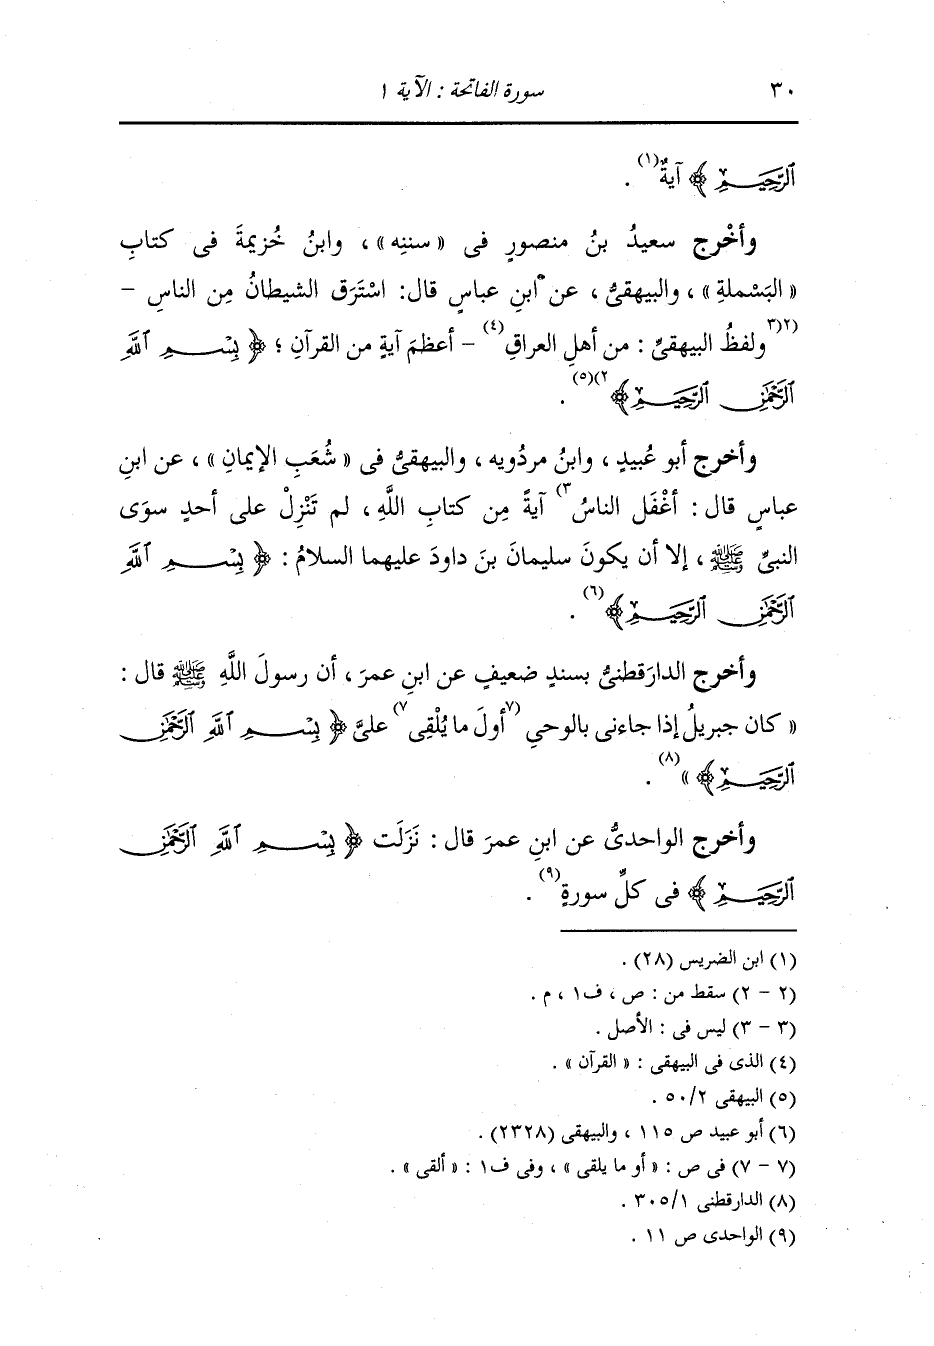 ٣٠
سورة الفاتحة : الآية ١
ٱلرَّحِيمِ ﴾ آيةٌ(١) .
وأخْرج سعيدُ بنُ منصورٍ فى « سننِه » ، وابنُ خُزيمةَ فى كتابِ
« البَسْملةِ » ، والبيهقىُّ ، عن ابنِ عباسٍ قال : اسْتَرَق الشيطانُ مِن الناسِ –
(٢(٣ولفظُ البيهقىِّ : من أهلِ العراقِ(٤) – أعظمَ آيةٍ من القرآنِ ؛ ﴿ بِسْمِ ٱللَّهِ
ٱلرَّحْمَٰنِ ٱلرَّحِيمِ ﴾٢)(٥) .
وأخرج أبو عُبيدٍ ، وابنُ مردُويه ، والبيهقىُّ فى « شُعَبِ الإيمانِ » ، عن ابنِ
عباسٍ قال : أغْفَل الناسُ٣) آيةً مِن كتابِ اللَّهِ ، لم تَنْزِلْ على أحدٍ سوَى
النبىِّ ﷺ ، إلا أن يكونَ سليمانَ بنَ داودَ عليهما السلامُ : ﴿ بِسْمِ ٱللَّهِ
ٱلرَّحْمَٰنِ ٱلرَّحِيمِ ﴾(٦) .
وأخرج الدارَقطنىُّ بسندٍ ضعيفٍ عن ابنِ عمرَ ، أن رسولَ اللَّهِ ﷺ قال :
« كان جبريلُ إذا جاءنى بالوحىِ (٧أولَ ما يُلْقِى٧) علىَّ ﴿ بِسْمِ ٱللَّهِ ٱلرَّحْمَٰنِ
ٱلرَّحِيمِ ﴾ »(٨) .
وأخرج الواحدىُّ عن ابنِ عمرَ قال : نَزَلَت ﴿ بِسْمِ ٱللَّهِ ٱلرَّحْمَٰنِ
ٱلرَّحِيمِ ﴾ فى كلِّ سورةٍ(٩) .
(١) ابن الضريس (٢٨) .
(٢ – ٢) سقط من : ص ، ف١ ، م .
(٣ – ٣) ليس فى : الأصل .
(٤) الذى فى البيهقى : « القرآن » .
(٥) البيهقى ٢/ ٥٠ .
(٦) أبو عبيد ص ١١٥ ، والبيهقى (٢٣٢٨) .
(٧ – ٧) فى ص : « أو ما يلقى » ، وفى ف١ : « ألقى » .
(٨) الدارقطنى ١/ ٣٠٥ .
(٩) الواحدى ص ١١ .